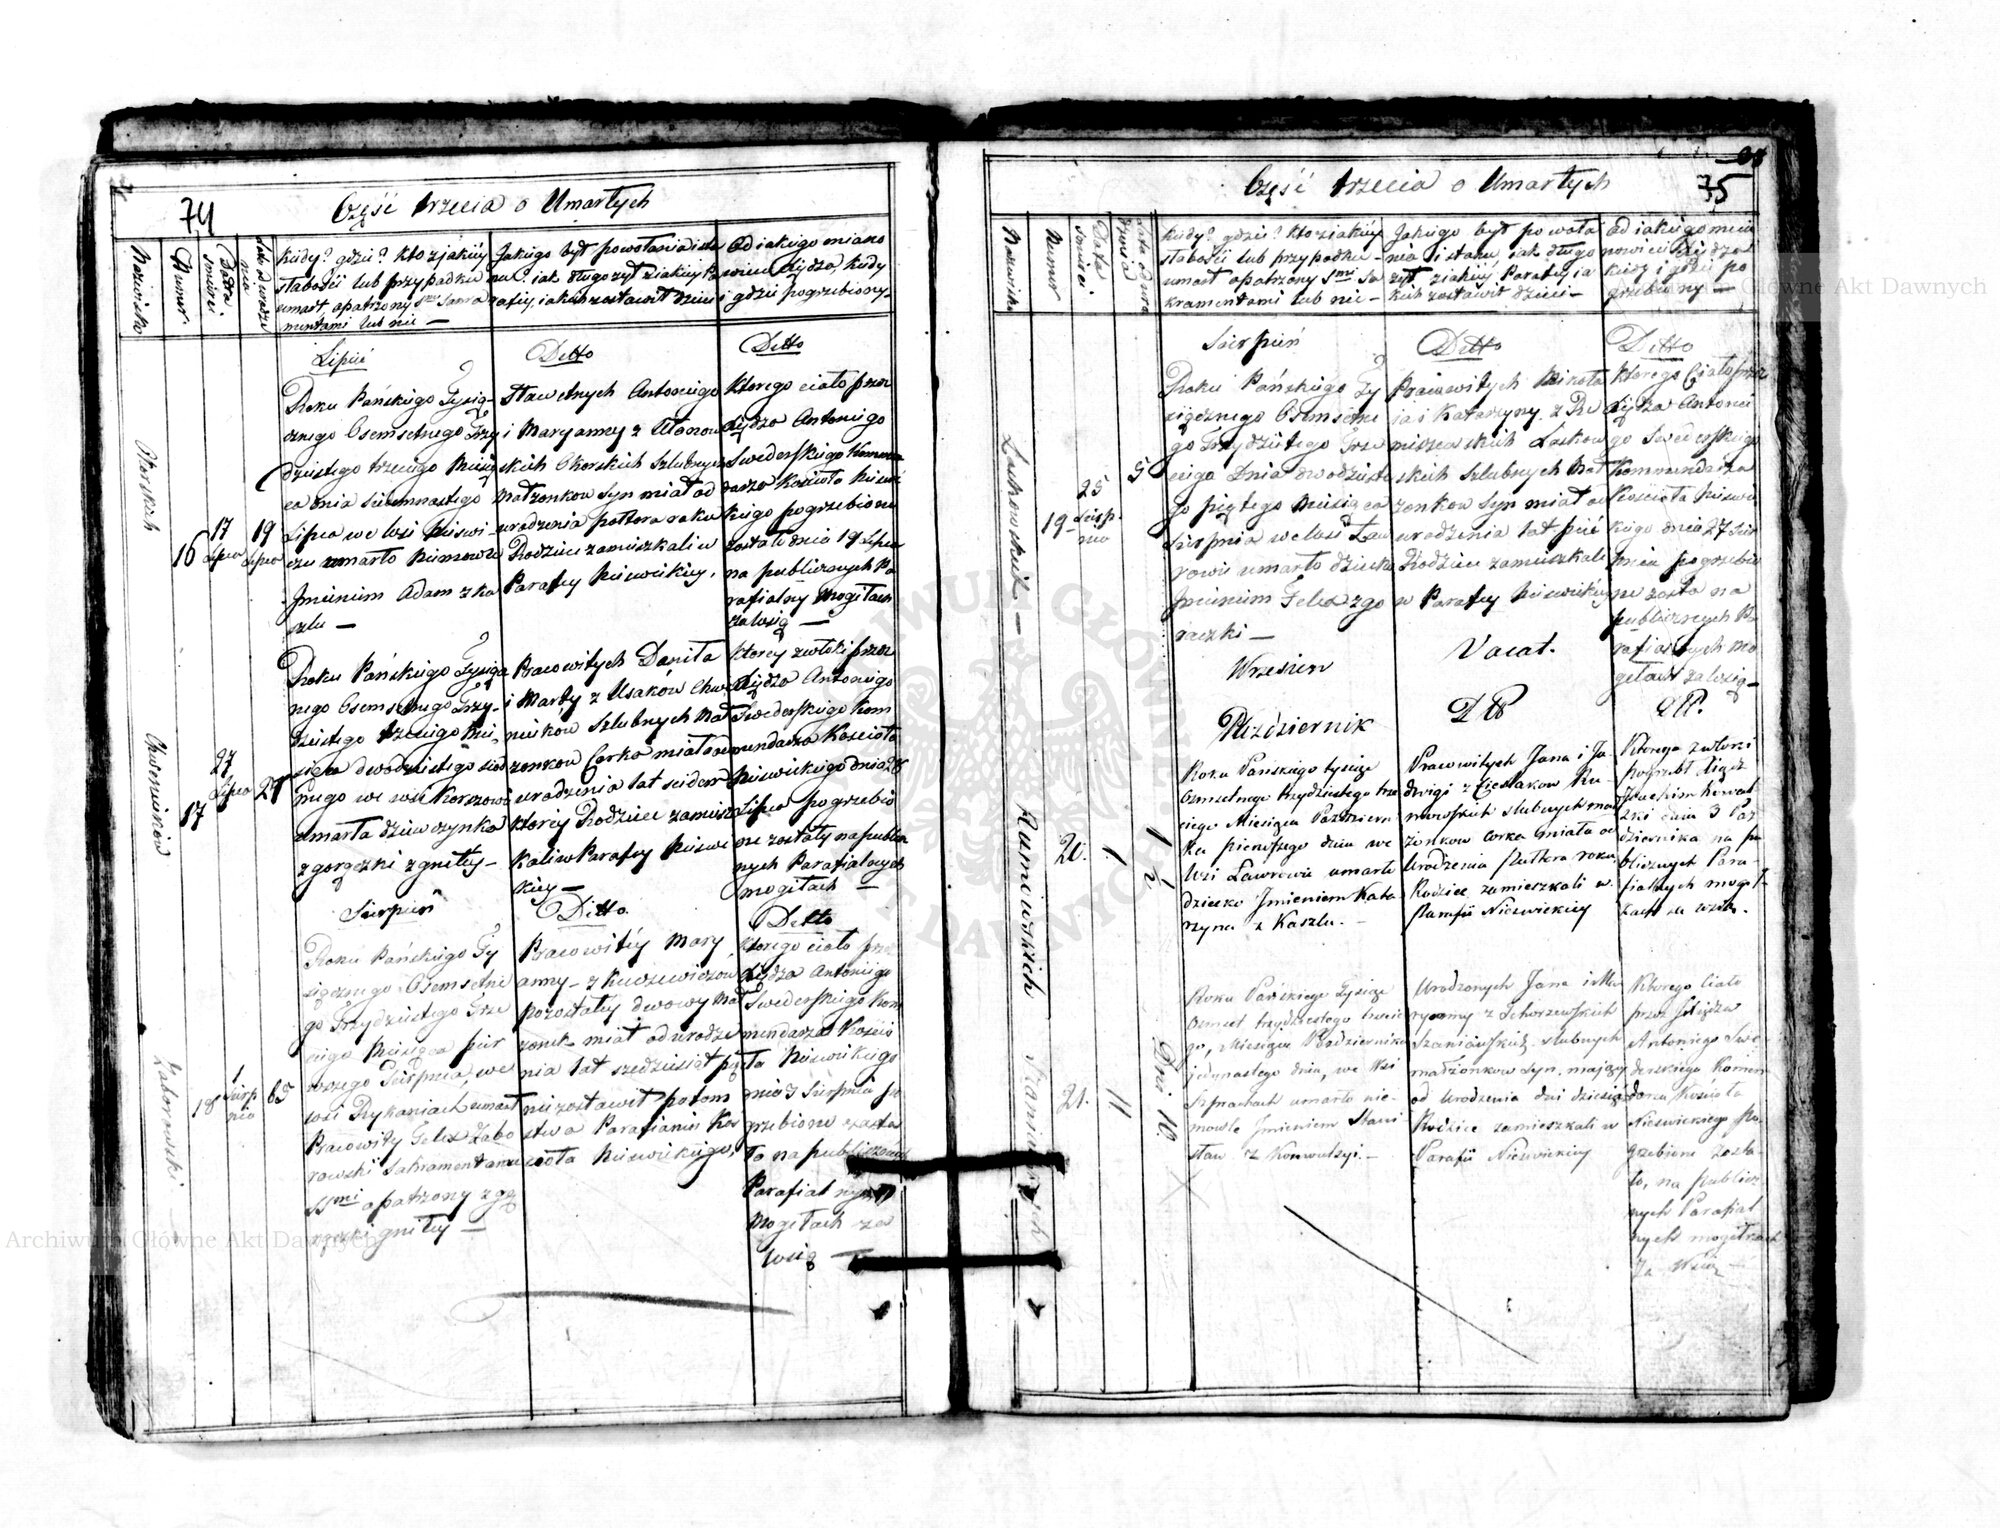 74
Część trzecia o Umarłych
Nazwisko
Numer
Data Śmierci
Kiedy? gdzie? kto z jakiey
słabości lub przypadku
umarł, opatrzony SSmi Sakra
mentami lub nie —
Jakiego był powołania i sta
nu? jak długo żył z jakiey Pa
rafiy, jakich zostawił dzieci
Od jakiego miano
wicie Xiędza, kiedy
i gdzie pogrzebiony
Okorskich
16
17
Lipca
19
Lipca
Lipiec
Roku Pańskiego Tysią
cznego Osemsetnego Trzy
dziestego trzeciego Miesią
ca dnia siedemnastego
Lipca we Wsi Nieswi
czu umarło Niemowle
Jmieniem Adam z ka
szlu —
Ditto
Sławetnych Antoniego
i Maryanny z Adamow
skich Okorskich Szlubnych
Małżonkow Syn miał od
urodzenia pułtora roku
Rodzice zamieszkali w
Parafiy Nieswickiey,
Ditto
Ktorego ciało przez
Xiędza Antoniego
Swederskiego Komen
darza Kościoła Nieswi
ckiego pogrzebione
zostało dnia 19 Lipca
na publicznych Pa
rafialnych Mogiłach
za wsią —
Chweieniukow
17
27
Lipca
Roku Pańskiego Tysiącz
nego Osemsetnego Trzy-
dziestego trzeciego Mie
siąca dwódziestego siód
mego we wsi Korszowi
umarła dziewczynka
z gorączki zgniłey —
Pracowitych Daniła
i Marty z Usaków Chwe
nieukow Szlubnych Mał
żonkow Corka miała od
urodzenia lat siedem
ktorey Rodzice zamiesz
kali w Parafiy Nieswi
ckiey —
ktorey zwłoki przez
Xiędza Antoniego
Swederskiego Kom
mendarza Kościoła
Nieswickiego dnia 28
Lipca pogrzebio
ne zostały na publi
cznych Parafialnych
mogiłach —
Zaborowski
18
1
Sierp
nia
65
Sierpień
Roku Pańskiego Ty
siącznego Osemsetne
go Trzydziestego Trze
ciego Miesiąca pier
wszego Sierpnia, we
wsi Rykaniach umarł
Pracowity Felix Zabo
rowski Sakramentami
SSmi opatrzony z go
rączki gniłey —
Ditto
Pracowitey Mary
anny z Kuczewiczow
pozostałey dwowy Mał
żonek miał od urodze
nia lat szedziesiąt pię
nie zostawił potom
stwa Parafianin Ko
scioła Nieswickiego,
Ditto
ktorego ciało przez
Xiędza Antoniego
Swederskiego Kom
mendarza Kościo
ła Nieswickiego
dnia 3 Sierpnia po
grzebione zosta
ło na publicznych
Parafialnych
Mogiłach za
wsią —
75
Część trzecia o Umarłych
Nazwisko
Numer
Data Śmierci
Kiedy? gdzie? kto z jakiey
słabości lub przypadku
umarł opatrzony SSmi Sa
kramentami lub nie —
Jakiego był powoła
nia i stanu, jak długo
żył z jakiey Parafiy ja
kich zostawił dzieci —
Od jakiego mia
nowicie Xiędza
kiedy i gdzie po
grzebiony —
Laskowskich —
19
25
Sierp-
nia
5
Sierpień
Roku Pańskiego Ty
siącznego Osemsetne
go Trzydziestego Trze
ciego Dnia dwódzieste
go piątego Miesiąca
Sierpnia we Wsi Ław
rowie umarło dziecko
Jmieniem Felix z go
rączki —
Ditto
Pracowitych Mikoła
ja i Katarzyny z Re
miszewskich Laskow
skich Szlubnych Mał
żonkow Syn miał od
urodzenia lat pięć
Rodzice zamieszkali
w Parafiy Nieswickiey
Ditto
ktorego Ciało przez
Xiędza Antonie
go Swederskiego
Kommendarza
Kościoła Nieswi
ckiego dnia 27 Sier
pnia pogrzebio
ne zosta na
publicznych Pa
rafialnych mo
giłach za wsią —
Wrzesień
Vacat.
Pazdziernik
Rumowskich
20.
1
1 1/2
Roku Pańskiego tysiącz
Osmsetnego trzydziestego trze
ciego Miesiąca Pazdziern
ika pierwszego dnia we
Wsi Ławrowie umarło
dziecko Jmieniem Kata
rzyna z Kaszlu. —
Pracowitych Jana i Ja
dwigi z Cieslakow Ru
mowskich slubnych mał
żonkow corka miała od
Urodzenia Pułtora roku
Rodzice zamieszkali w
Parafii Nieswickiey
Ktorego zwłoki
pogrzebł Xiądz
Joachim Kowal
ski dnia 3 Paz
dziernika na pu
blicznych Para-
fialnych mogił-
łach za wsią.
Szaniawskich
21.
11
Dni 10.
Roku Pańskiego Tysiącz
Osmset trzydziestego trzecie
go, Miesiąca Pazdziernika
jedynastego dnia, we Wsi
Szprachach umarło nie-
mowle Jmieniem Stani
sław z Konwulsyi. —
Urodzonych Jana i Ma
ryanny z Schorzewskich
Szaniawskich slubnych
małżonkow Syn, maiący
od Urodzenia dni dziesięć
Rodzice zamieszkali w
Parafii Nieswickiey
Ktorego Ciało
przez Xiędza
Antoniego Swe-
derskiego Komen
darza Kościoła
Nieswickiego Po-
grzebione zosta-
ło, na Publicz-
nych Parafial
nych mogiłach
Za Wsią —
Archiwum Główne Akt Dawnych